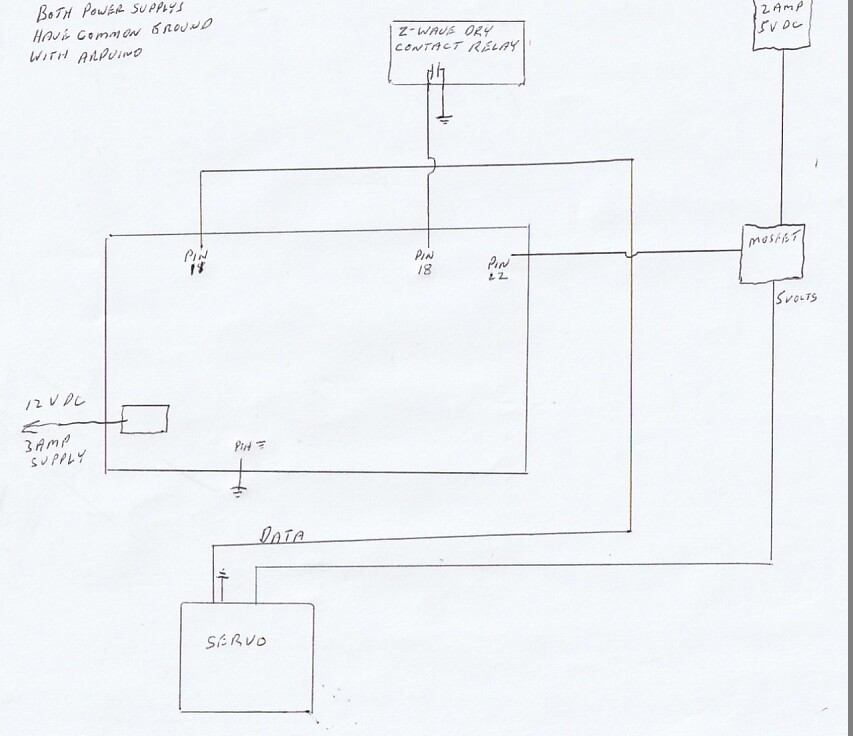 BOTH POWER SUPPLYS
HAVE COMMON GROUND
WITH ARDUINO
Z-WAVE DRY
CONTACT RELAY
2 AMP
5V DC
PIN
PIN
18
PIN
22
MOSFET
5 VOLTS
12 V DC
3 AMP
SUPPLY
PIN
DATA
SERVO